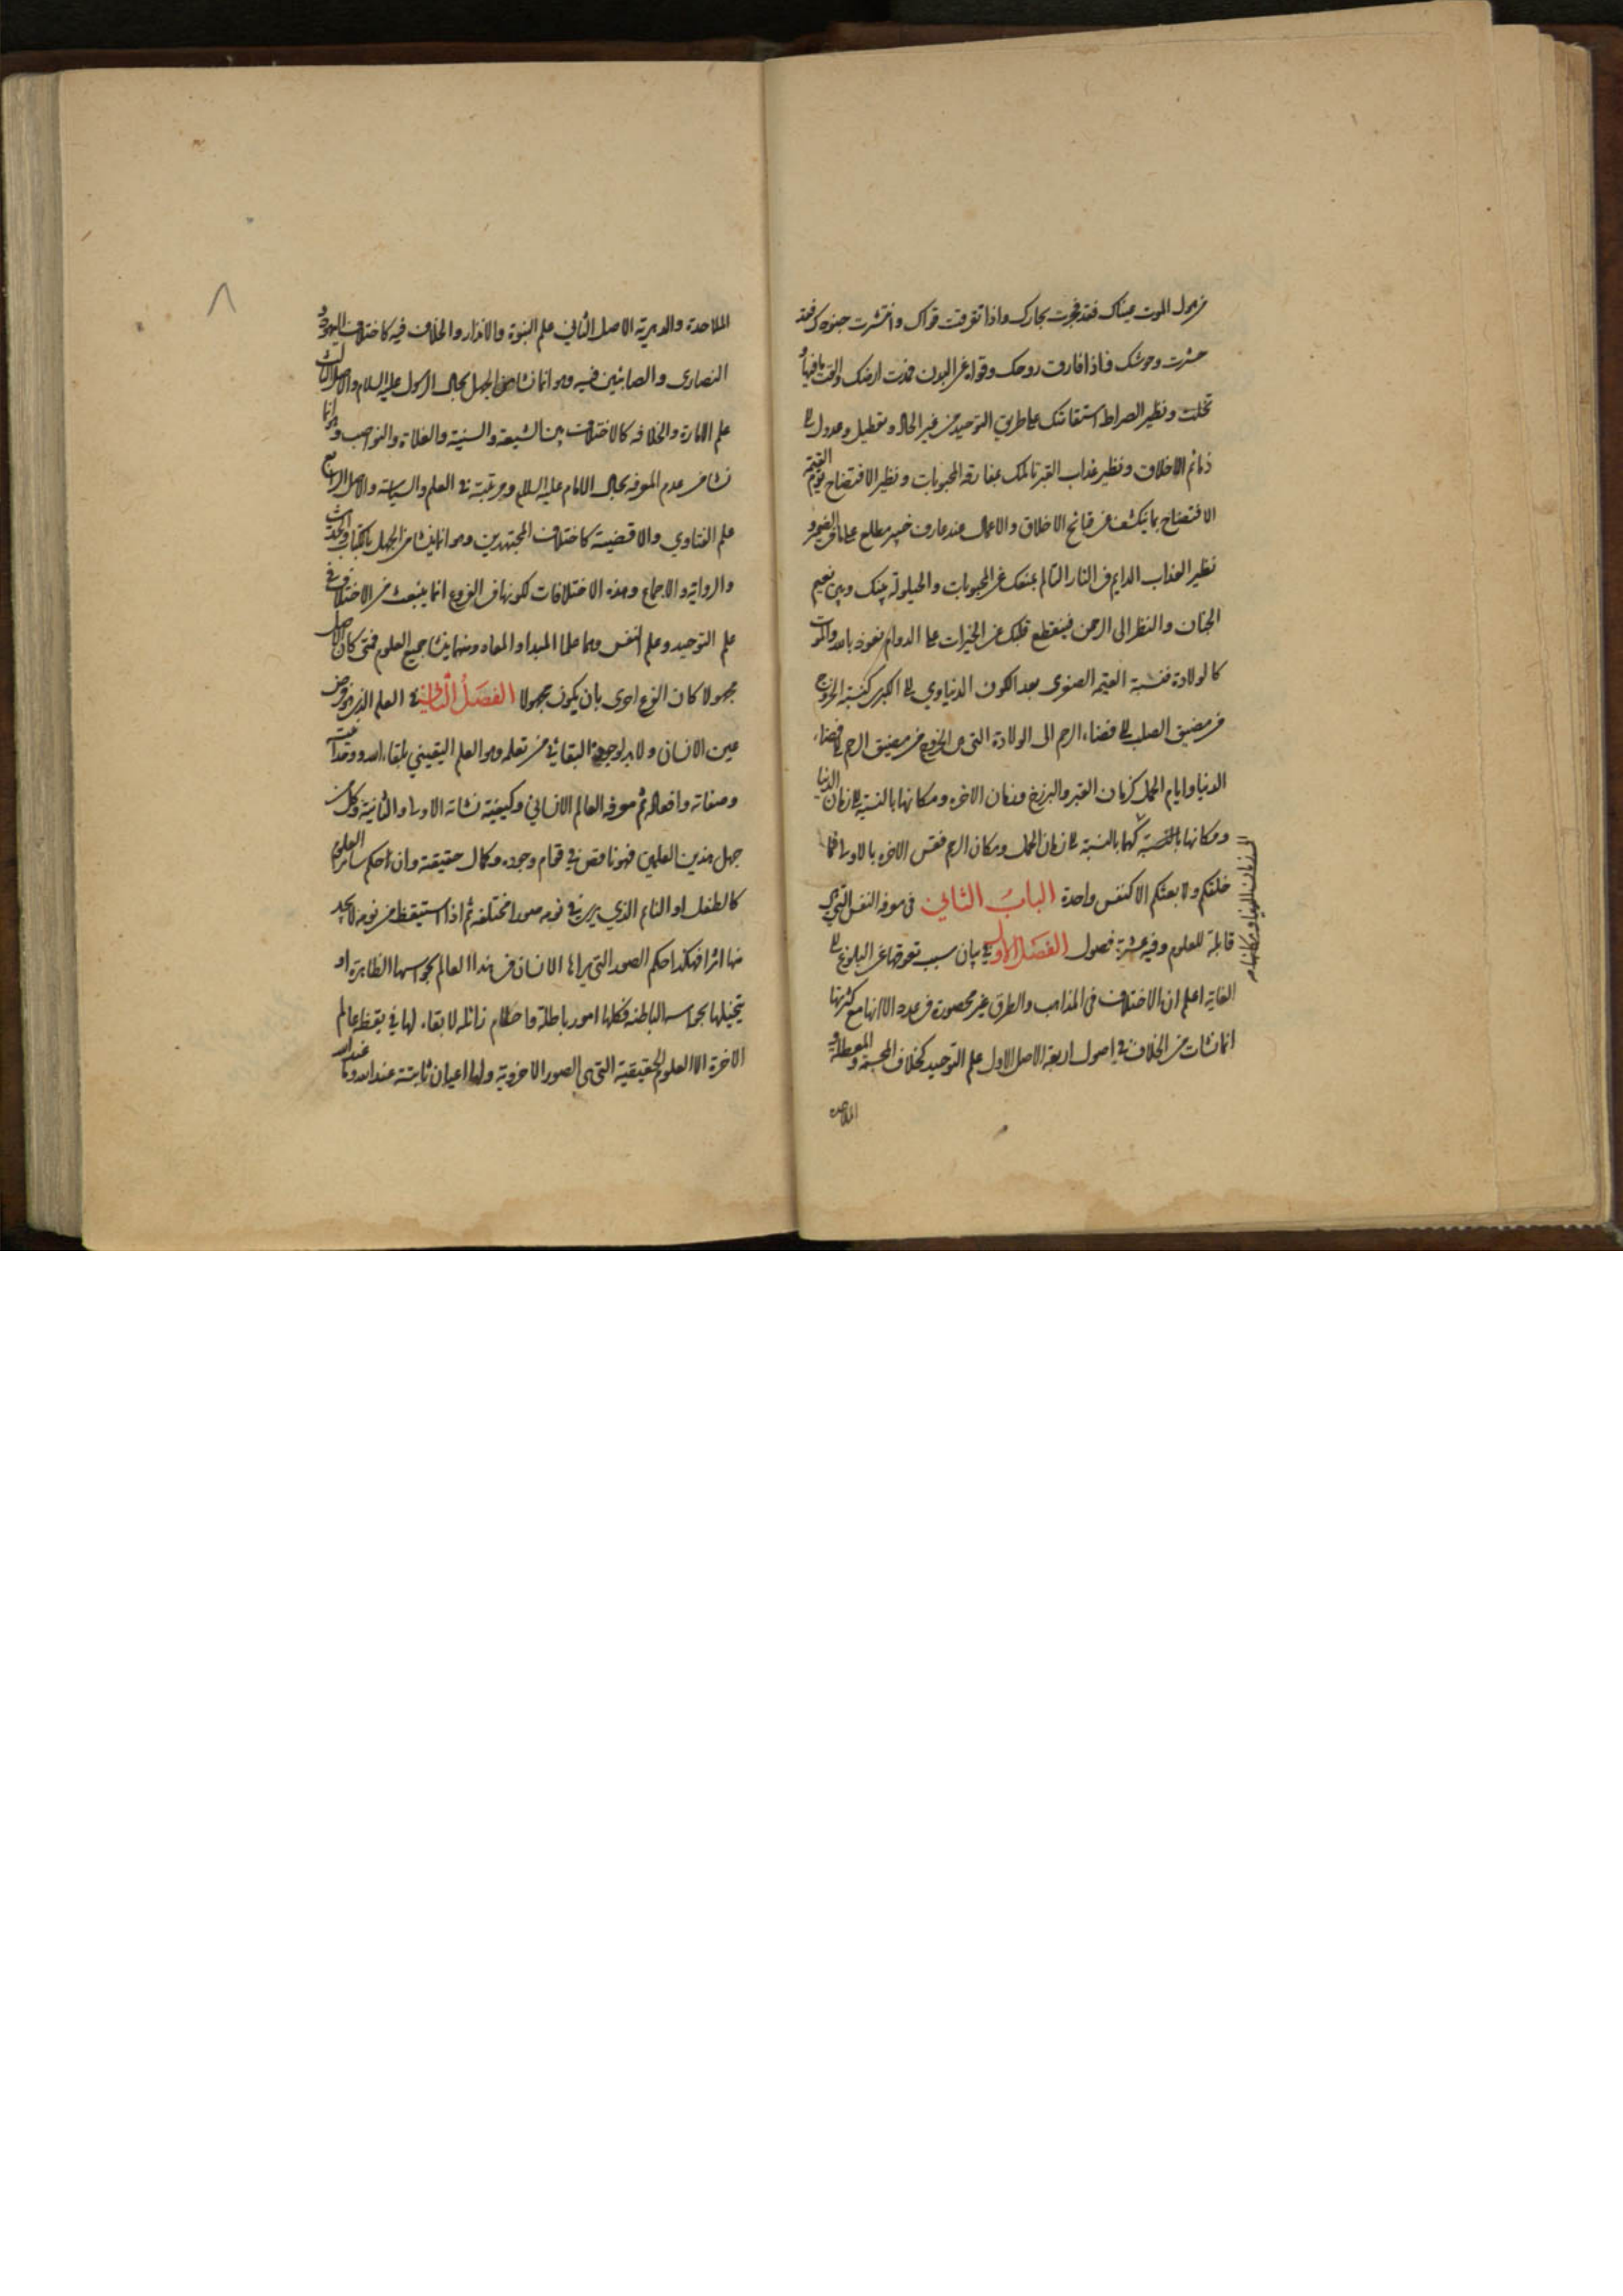 من هول الموت عيناك فقد فجرت بحارك واذا تفرقت قواك وانتشرت جنودك فقد
حشرت وحوشك فاذا فارقت روحك وقواه عن البدن فمدت ارضك والقت ما فيها و
تخلت ونظير الصراط استقامتك على طريق التوحيد من غير الحاد وتعطيل وعدول الى
ذمائم الاخلاق ونظير عذاب القبر تالمك بمفارقة المحبوبات ونظير الافتضاح يوم القيمة
الافتضاح بما ينكشف من قبائح الاخلاق والاعمال عند عارف خبير مطلع على ما في الضمير و
نظير العذاب الدايم في النار التالم بمنعك عن المحبوبات والحيلولة بينك وبين نعيم
الجنان والنظر الى الرحمن فينقطع قلبك عن الخيرات على الدوام نعوذ بالله والموت
كالولادة فنسبة القيمة الصغرى بعد الكون الدنياوي الى الكبرى كنسبة الخروج
من مضيق الصلب الى فضاء الرحم الى الولادة التى هى الخروج من مضيق الرحم الى فضاء
الدنيا وايام الحمل كزمان القبر والبرزخ وزمان الاخرة ومكانها بالنسبة الى زمان الدنيا
ومكانها بالنسبة كهما بالنسبة الى زمان الحمل ومكان الرحم فقس الاخرة بالاولى فما
خلقكم ولا بعثكم الا كنفس واحدة الباب الثاني في معرفة النفس التي هي
قابلة للعلوم وفيه عشرة فصول الفصل الاول في بيان سبب تعوقها عن البلوغ الى
الغاية اعلم ان الاختلاف في المذاهب والطرق غير محصورة في عدد الا انها مع كثرتها
انما نشات من الخلاف في اصول اربعة الاصل الاول علم التوحيد كخلاف المجسمة والمعطلة و
الملاحدة
الملاحدة والدهرية الاصل الثاني علم النبوة والانذار والخلاف فيه كاختلاف اليهود و
النصارى والصابئين فيه وهو انما نشا من الجهل بحال الرسول عليه السلام والاصل الثالث
علم الامارة والخلافه كالاختلاف بين الشيعة والسنية والغلاة والنواصب وهو انما
نشا من عدم المعرفة بحال الامام عليه السلام ومرتبته في العلم والسياسة والاصل الرابع
علم الفتاوي والاقضية كاختلاف المجتهدين وهو انما ينشا من الجهل بالكتاب والحديث
والرواية والاجماع وهذه الاختلافات لكونها في الفروع انما ينبعث من الاختلاف في
علم التوحيد وعلم النفس وهما علما المبدا والمعاد ومنهما ينشا جميع العلوم فمتى كان الاصل
مجهولا كان الفرع احرى بان يكون مجهولا الفصل الثاني في العلم الذي هو فرض
عين الانسان ولا بد لوجوده البقائي من تعلمه وهو العلم اليقيني بلقاء الله ووحدانيته
وصفاته وافعاله ثم معرفة العالم الانساني وكيفية نشاته الاولى والثانية وكل من
جهل هذين العلمين فهو ناقص في تمام وجوده وكمال حقيقته وان احكم سائر العلوم
كالطفل او النائم الذي يرى في نومه صورا مختلفة ثم اذا استيقظ من نومه لا يجد
منها اثرا فهكذا حكم الصور التي يراها الانسان في هذا العالم بحواسها الظاهرة او
يتخيلها بحواسه الباطنة فكلها امور باطلة واحكام زائلة لا بقاء لها في يقظة عالم
الاخرة الا العلوم الحقيقية التى هى الصور الاخروية ولها اعيان ثابتة عند الله وما عند الله